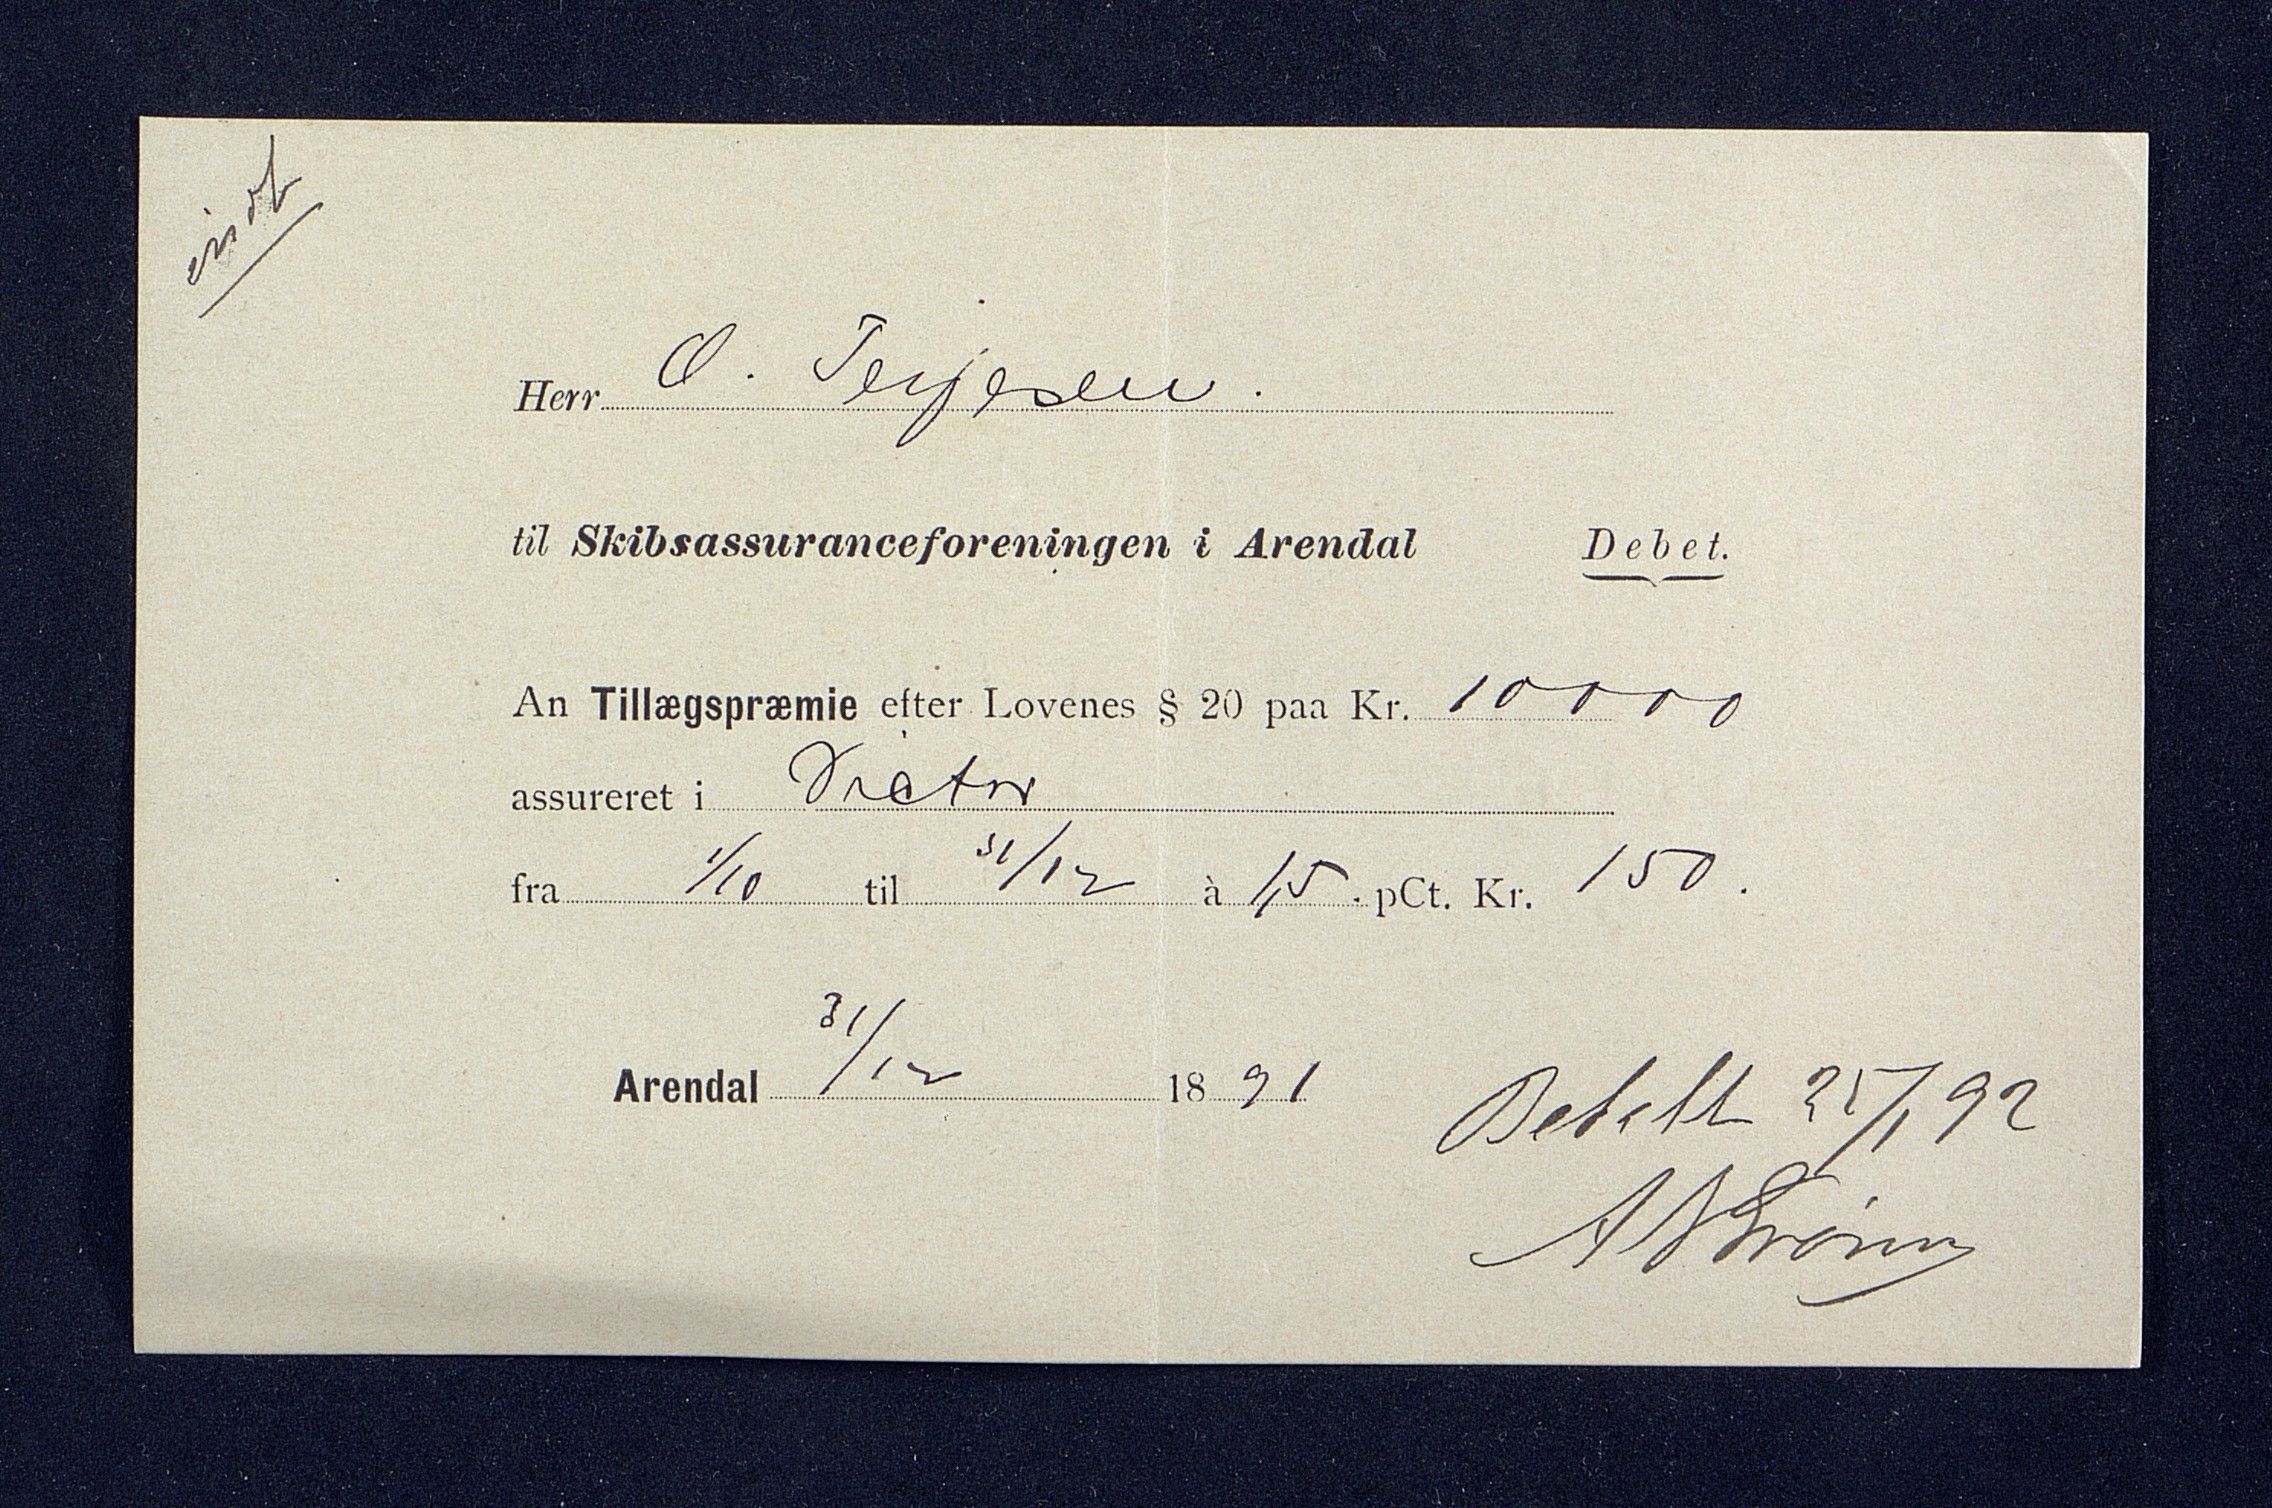 indf
Herr O. Terjesen.
til Skibsassuranceforeningen i Arendal Debet.
An Tillægspræmie efter Lovenes § 20 paa Kr. 10000
assureret i Victor
fra 1/10 til 31/12 à 1,5. pCt. Kr. 150.
Arendal 31/12 1891
Betalt 25/1 92